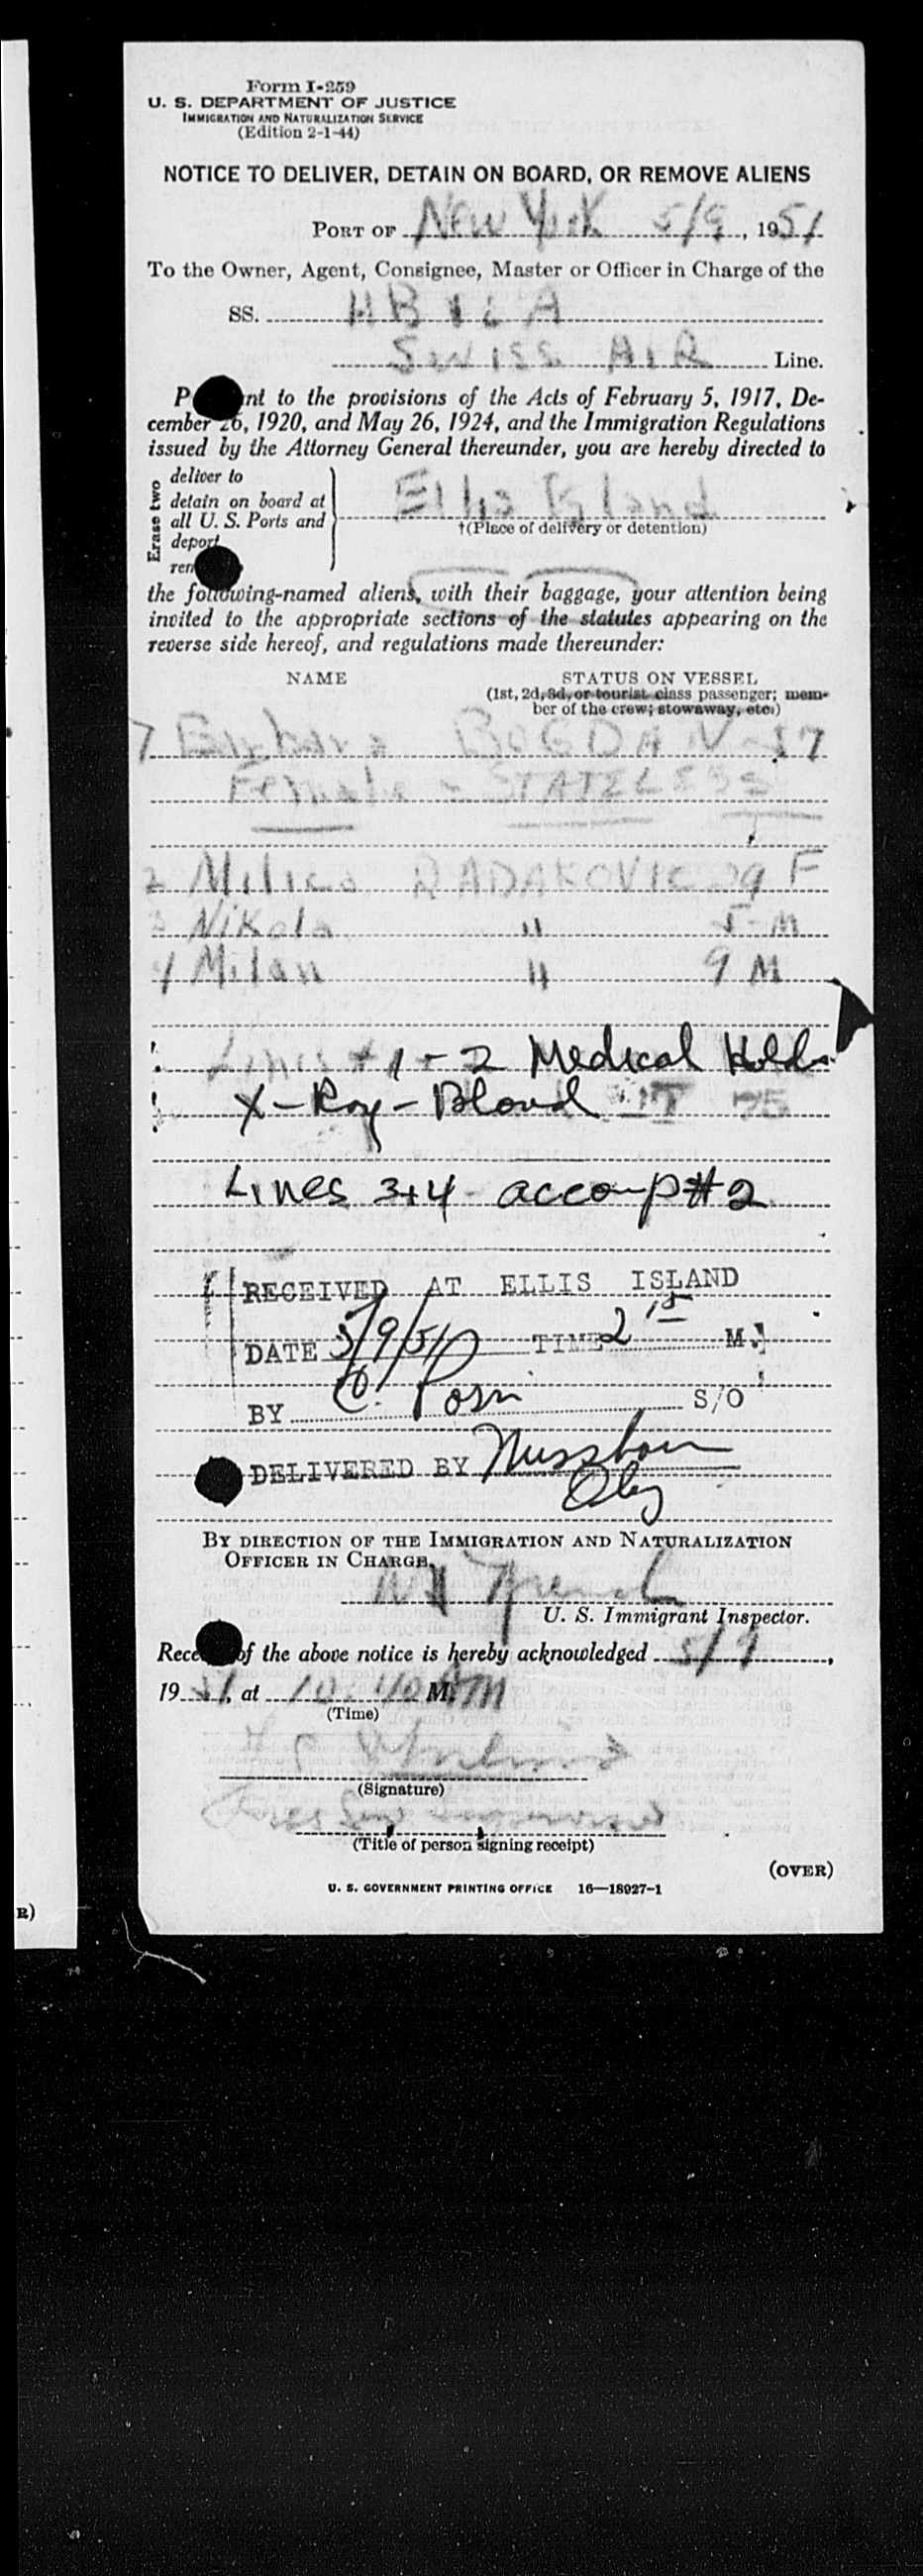 Form I-259
U. S. DEPARTMENT OF JUSTICE
IMMIGRATION AND NATURALIZATION SERVICE
(Edition 2-1-44)
NOTICE TO DELIVER, DETAIN ON BOARD, OR REMOVE ALIENS
PORT OF New York 5/9, 1951
To the Owner, Agent, Consignee, Master or Officer in Charge of the
SS. HB
SWISS AIR Line.
to the provisions of the Acts of February 5, 1917, De-
cember 26, 1920, and May 26, 1924, and the Immigration Regulations
issued by the Attorney General thereunder, you are hereby directed to
Erase two
deliver to
detain on board at
all U. S. Ports and
deport
Ellis Island
†(Place of delivery or detention)
the following-named aliens, with their baggage, your attention being
invited to the appropriate sections of the statutes appearing on the
reverse side hereof, and regulations made thereunder:
NAME STATUS ON VESSEL
(1st, 2d, 3d, or tourist class passenger; mem-
ber of the crew; stowaway, etc.)
BOGDAN
Female - STATELESS
2 Milica RADAKOVIC 29 F
3 Nikola " 5 - M
4 Milan " 9 M
Lines # 1 - 2 Medical Holds
X-Ray - Blood
Lines 3+4 - accomp # 2
RECEIVED AT ELLIS ISLAND
DATE 5/9/51 TIME 2 15 M.
BY C. S/O
DELIVERED BY
BY DIRECTION OF THE IMMIGRATION AND NATURALIZATION
OFFICER IN CHARGE.
U. S. Immigrant Inspector.
of the above notice is hereby acknowledged 5/9,
1951, at 10:40 M. AM
(Time)
(Signature)
(Title of person signing receipt)
(OVER)
U. S. GOVERNMENT PRINTING OFFICE 16—18927-1
R)